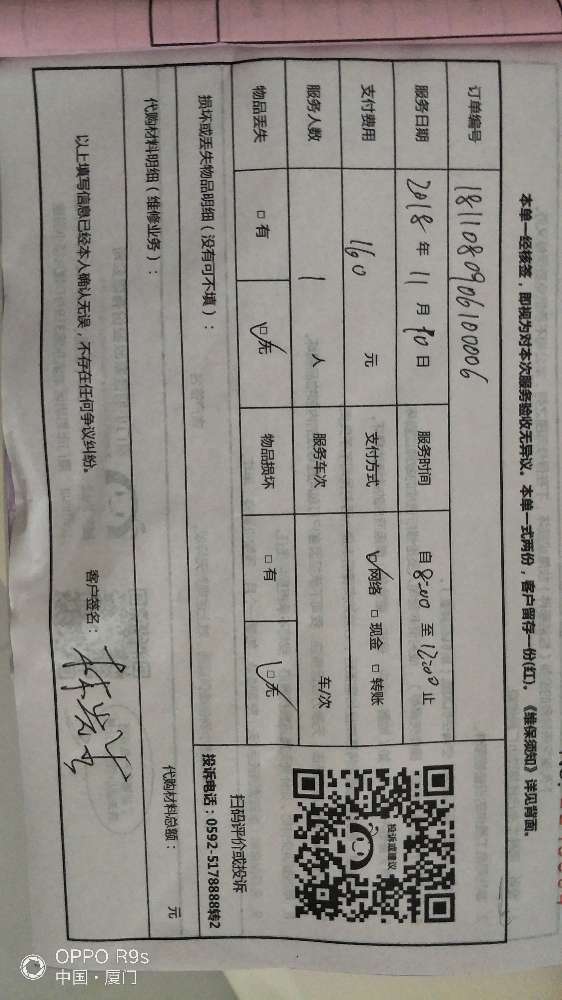 本单一经核签，即视为对本次服务验收无异议。本单一式两份，客户留存一份(红)。《维保须知》详见背面。
订单编号 181108090610006
服务日期 2018 年 11 月 10 日 服务时间 自 8:00 至 12:00 止
支付费用 160 元 支付方式 ☑网络 □现金 □转账
服务人数 1 人 服务车次 车/次
物品丢失 □有 ☑无 物品损坏 □有 ☑无
损坏或丢失物品明细（没有可不填）：
投诉或建议
扫码评价或投诉
投诉电话：0592-5178888转2
代购材料明细（维修业务）：
代购材料总额： 元
以上填写信息已经本人确认无误，不存在任何争议纠纷。
客户签名：
OPPO R9s
中国·厦门